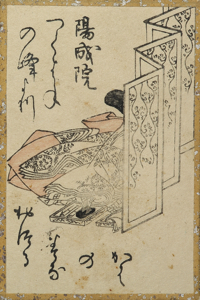 陽成院
つくはね
の峰より
おつる
みな
の
かは